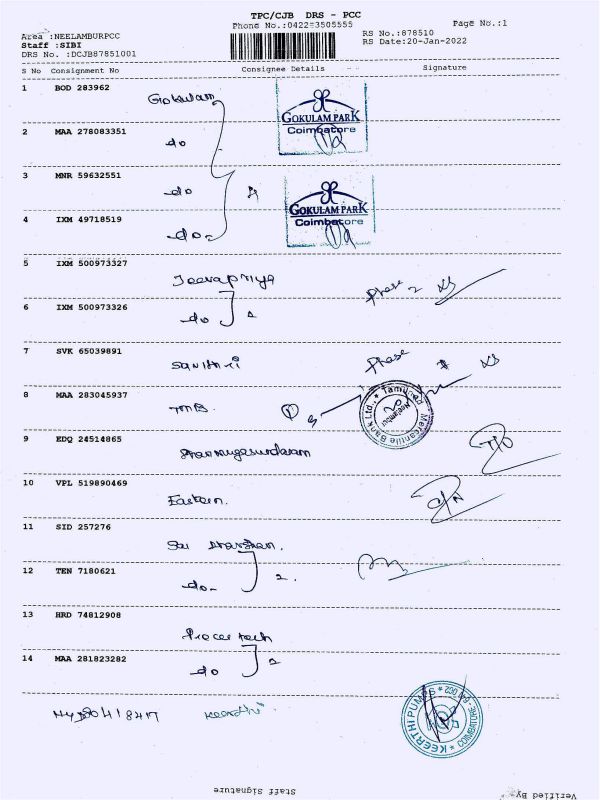 TPC/CJB DRS - PCC
Phone No.:0422-3505555
Page No.:1
Area :NEELAMBURPCC
RS No.:878510
Staff :SIBI
RS Date:20-Jan-2022
DRS No. :DCJB87851001
S No Consignment No Consignee Details Signature
1 BOD 283962
Gokulam
GOKULAM PARK
Coimbatore
2 MAA 278083351
do
3 MNR 59632551
do 4
GOKULAM PARK
Coimbatore
4 IXM 49718519
do
5 IXM 500973327
Jeevapriya
Phase 2
6 IXM 500973326
do 2
7 SVK 65039891
Savithri
Phase
8 MAA 283045937
TMB.
Tamilnad Mercantile Bank Ltd.,
9 EDQ 24514865
Shanmugasundaram
10 VPL 519890469
Eastern.
11 SID 257276
Sai Dharshan.
12 TEN 7180621
do 2.
13 HRD 74812908
14 MAA 281823282
do 2
Keerthi
KEERTHI PUMPS
COIMBATORE
Staff Signature
Verified By